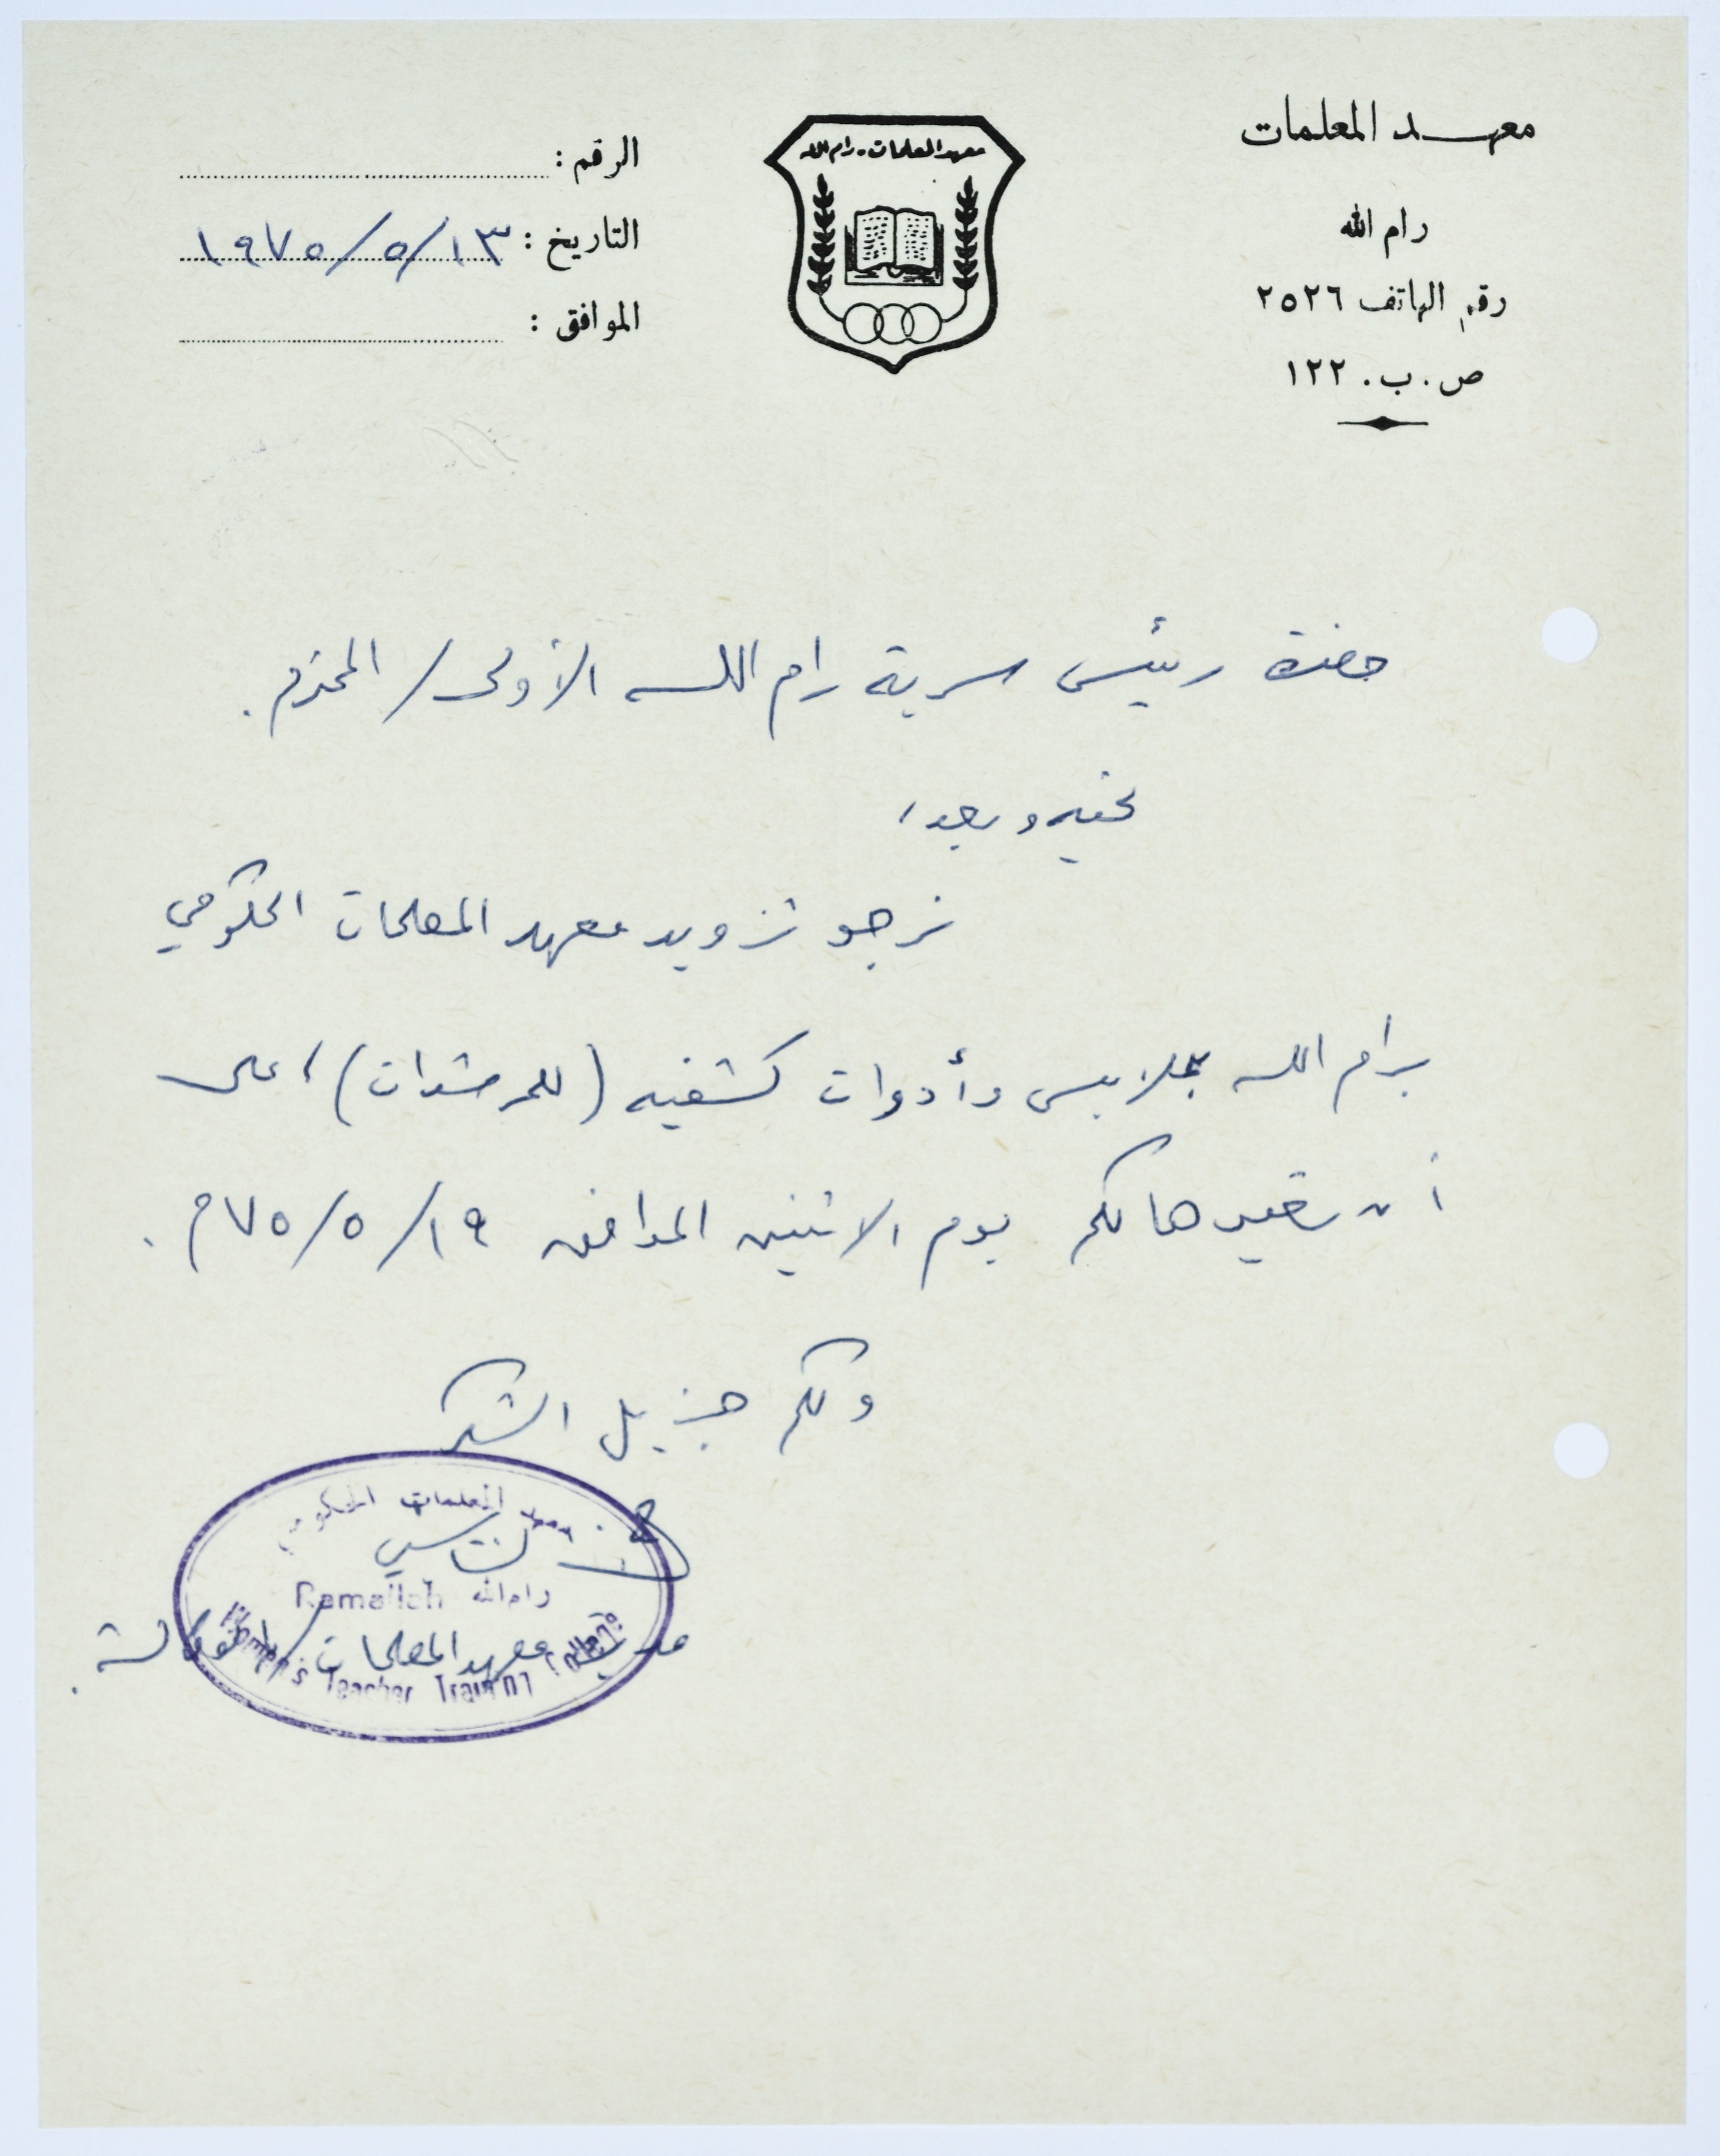 معهد المعلمات
رام الله
رقم الهاتف ٢٥٢٦
ص.ب. ١٢٢
معهد المعلمات - رام الله
الرقم :
التاريخ : ١٩٧٥/٥/١٣
الموافق :
حضرة رئيس سرية رام الله الأولى / المحترم .
تحيه وبعد ،
نرجو تزويد معهد المعلمات الحكومي
برام الله بملابس وأدوات كشفيه (للمرشدات) ، على
أن نعيدها لكم يوم الاثنين الموافق ١٩/٥/٧٥م .
ولكم جزيل الشكر
معهد المعلمات الحكومي
رام الله Ramallah
Women's Teacher Training College
مديرة معهد المعلمات / بالوكالة .